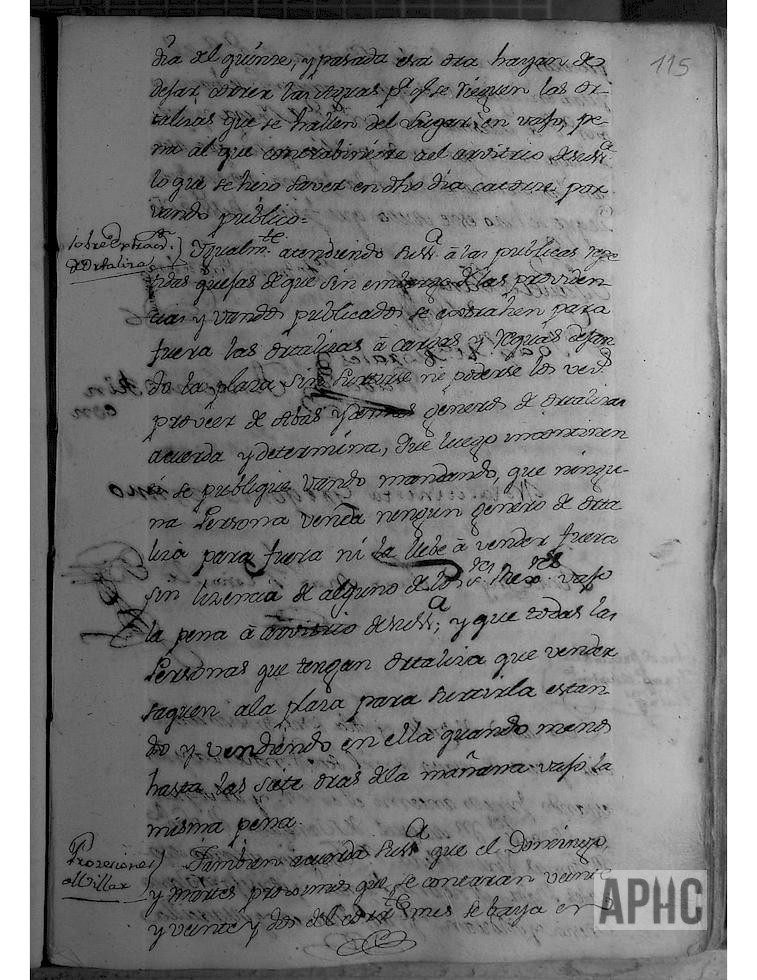 115
dia del quinze, y pasada esa ora hayan de
dejar correr las Aguas pª. q̃. se rieguen las or-
talizas que se hallen del Lugar en vajo, pe-
na al que contrabiniere del arvitrio de su Sª
lo que se hizo saver en dho dia catorce por
vando publico=
Sobre Extraccⁿ.
de ortaliza
Igualmte. atendiendo su Sª à las publicas repe
tidas quejas de que sin embargo de las providen-
cias y vandos publicados se extrahen para
fuera las ortalizas à cargas y dejan
do la plaza sin surtirse ni poderse los vezs
proveer de abas y demas generos de ortalizas
acuerda y determina, que luego incontinen
ti se publique vando mandando, que ningu-
na Persona venda ningun genero de orta
liza para fuera ni la llebe à vender fuera
sin lizencia de alguno de los Sres. Rexres. vajo
la pena à arvitrio de su Sª; y que todas las
Personas que tengan ortaliza que vender
saquen a la plaza para surtirla estan-
do y vendiendo en ella quando menos
hasta las siete oras de la mañana vajo la
misma pena.
Prozesiones
al Villar
Tambien acuerda su Sª que el Domingo,
y martes proximos que se contaran veinte
y veinte y dos del corrte mes se baya en
APHC